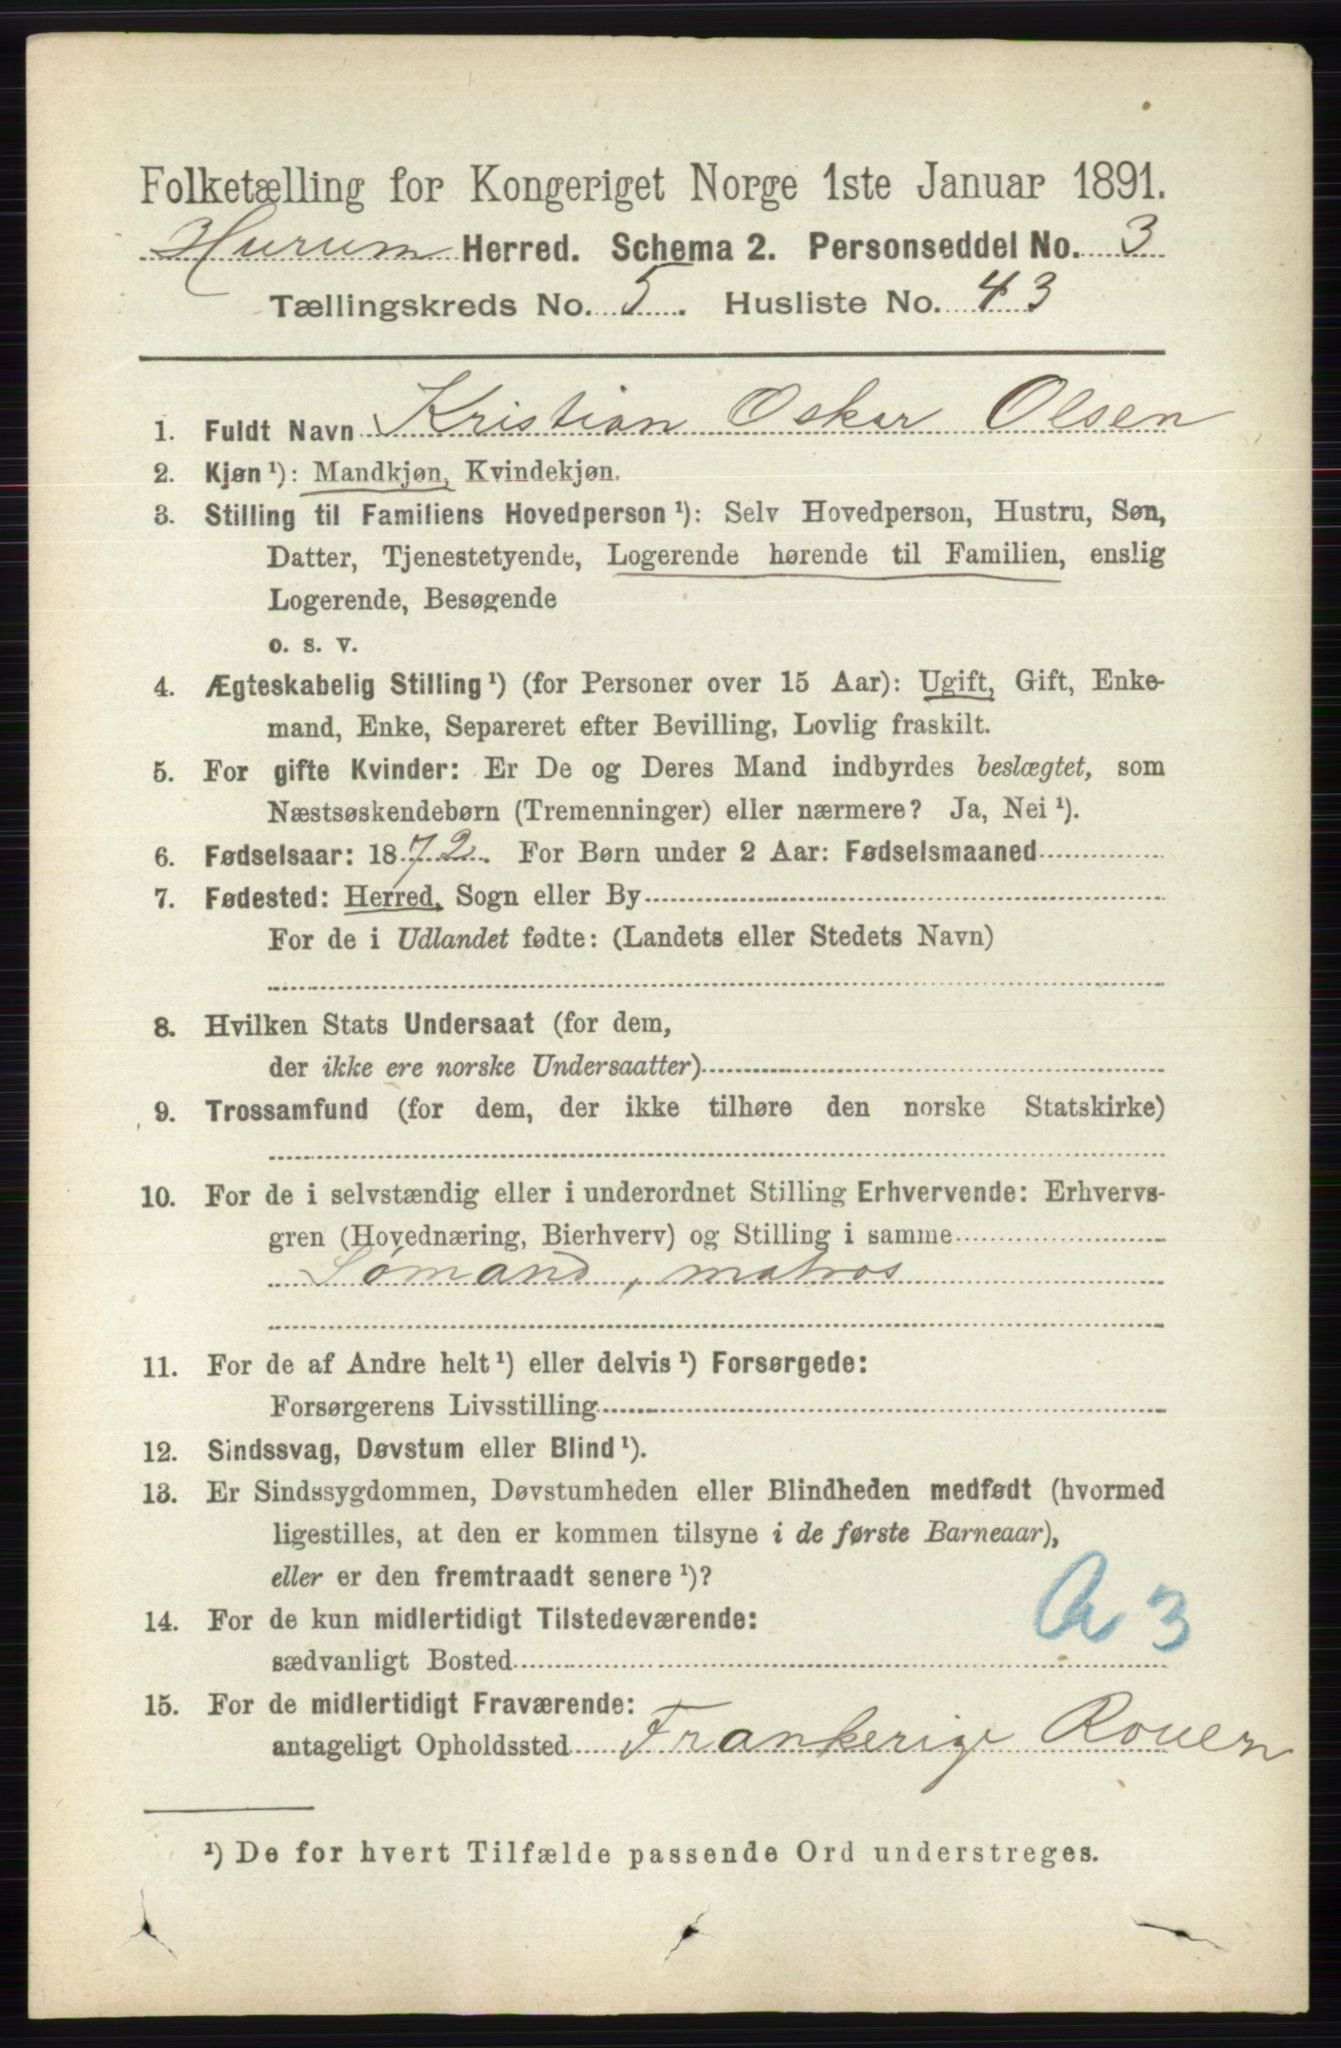 Folketælling for Kongeriget Norge 1ste Januar 1891.
Hurum Herred. Schema 2. Personseddel No. 3
Tællingskreds No. 5. Husliste No. 43
1. Fuldt Navn Kristian Oskar Olsen
2. Kjøn¹): Mandkjøn, Kvindekjøn.
3. Stilling til Familiens Hovedperson¹): Selv Hovedperson, Hustru, Søn,
Datter, Tjenestetyende, Logerende hørende til Familien, enslig
Logerende, Besøgende
o. s. v.
4. Ægteskabelig Stilling¹) (for Personer over 15 Aar): Ugift, Gift, Enke-
mand, Enke, Separeret efter Bevilling, Lovlig fraskilt.
5. For gifte Kvinder: Er De og Deres Mand indbyrdes beslægtet, som
Næstsøskendebørn (Tremenninger) eller nærmere? Ja, Nei¹).
6. Fødselsaar: 1872. For Børn under 2 Aar: Fødselsmaaned
7. Fødested: Herred, Sogn eller By
For de i Udlandet fødte: (Landets eller Stedets Navn)
8. Hvilken Stats Undersaat (for dem,
der ikke ere norske Undersaatter)
9. Trossamfund (for dem, der ikke tilhøre den norske Statskirke)
10. For de i selvstændig eller i underordnet Stilling Erhvervende: Erhvervs-
gren (Hovednæring, Bierhverv) og Stilling i samme
Sømand, matros
11. For de af Andre helt¹) eller delvis¹) Forsørgede:
Forsørgerens Livsstilling
12. Sindssvag, Døvstum eller Blind¹).
13. Er Sindssygdommen, Døvstumheden eller Blindheden medfødt (hvormed
ligestilles, at den er kommen tilsyne i de første Barneaar),
eller er den fremtraadt senere¹)?
14. For de kun midlertidigt Tilstedeværende:
sædvanligt Bosted
A 3
15. For de midlertidigt Fraværende:
antageligt Opholdssted Frankerige Rouen
¹) De for hvert Tilfælde passende Ord understreges.